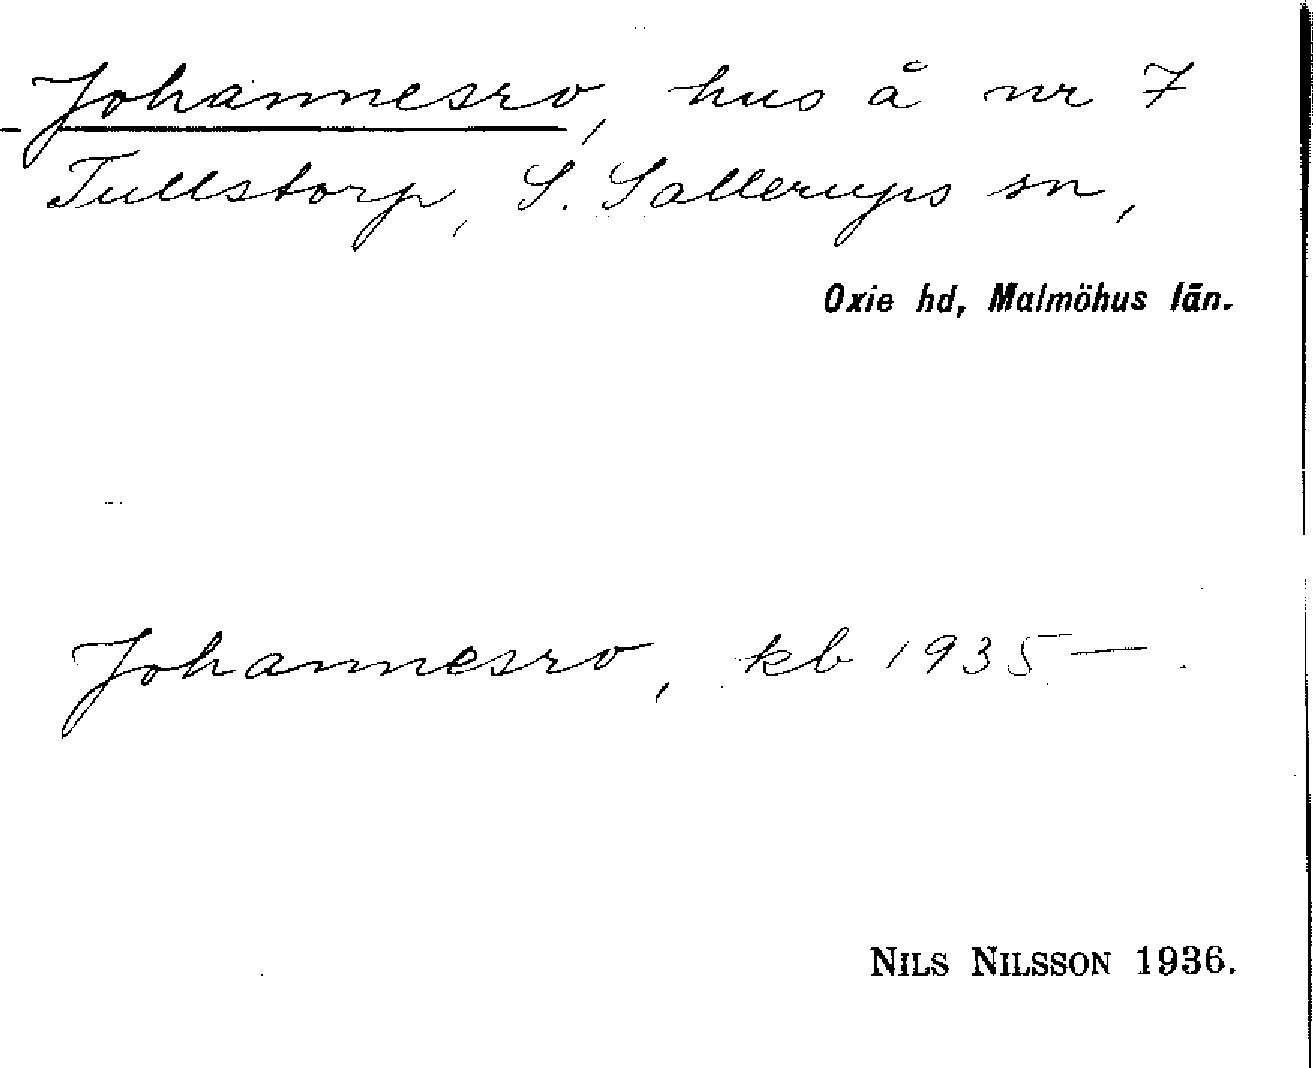 Johannesro, hus å nr 7
Tullstorp, S. Sallerups sn,
Oxie hd, Malmöhus län.
Johannesro, kb 1935—.
NILS NILSSON 1936.